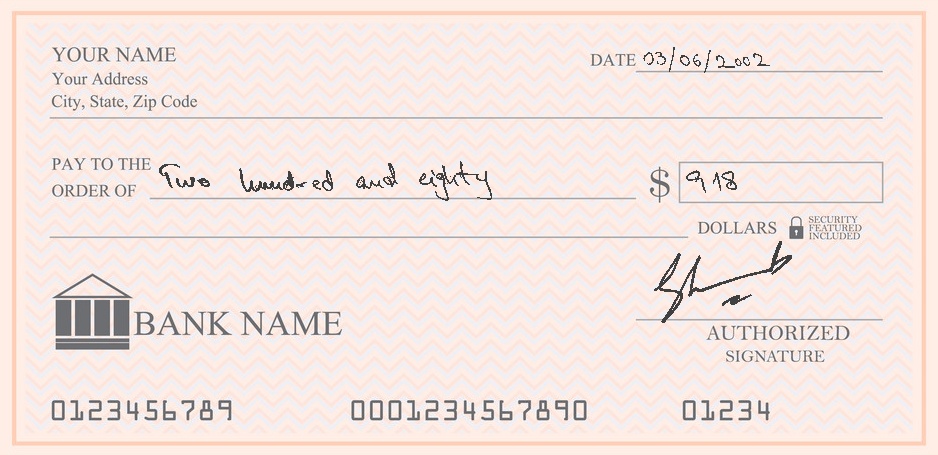 YOUR NAME
Your Address
City, State, Zip Code
DATE 03/06/2002
PAY TO THE
ORDER OF Two hundred and eighty $ 918
DOLLARS SECURITY
FEATURED
INCLUDED
BANK NAME
AUTHORIZED
SIGNATURE
0123456789 0001234567890 01234